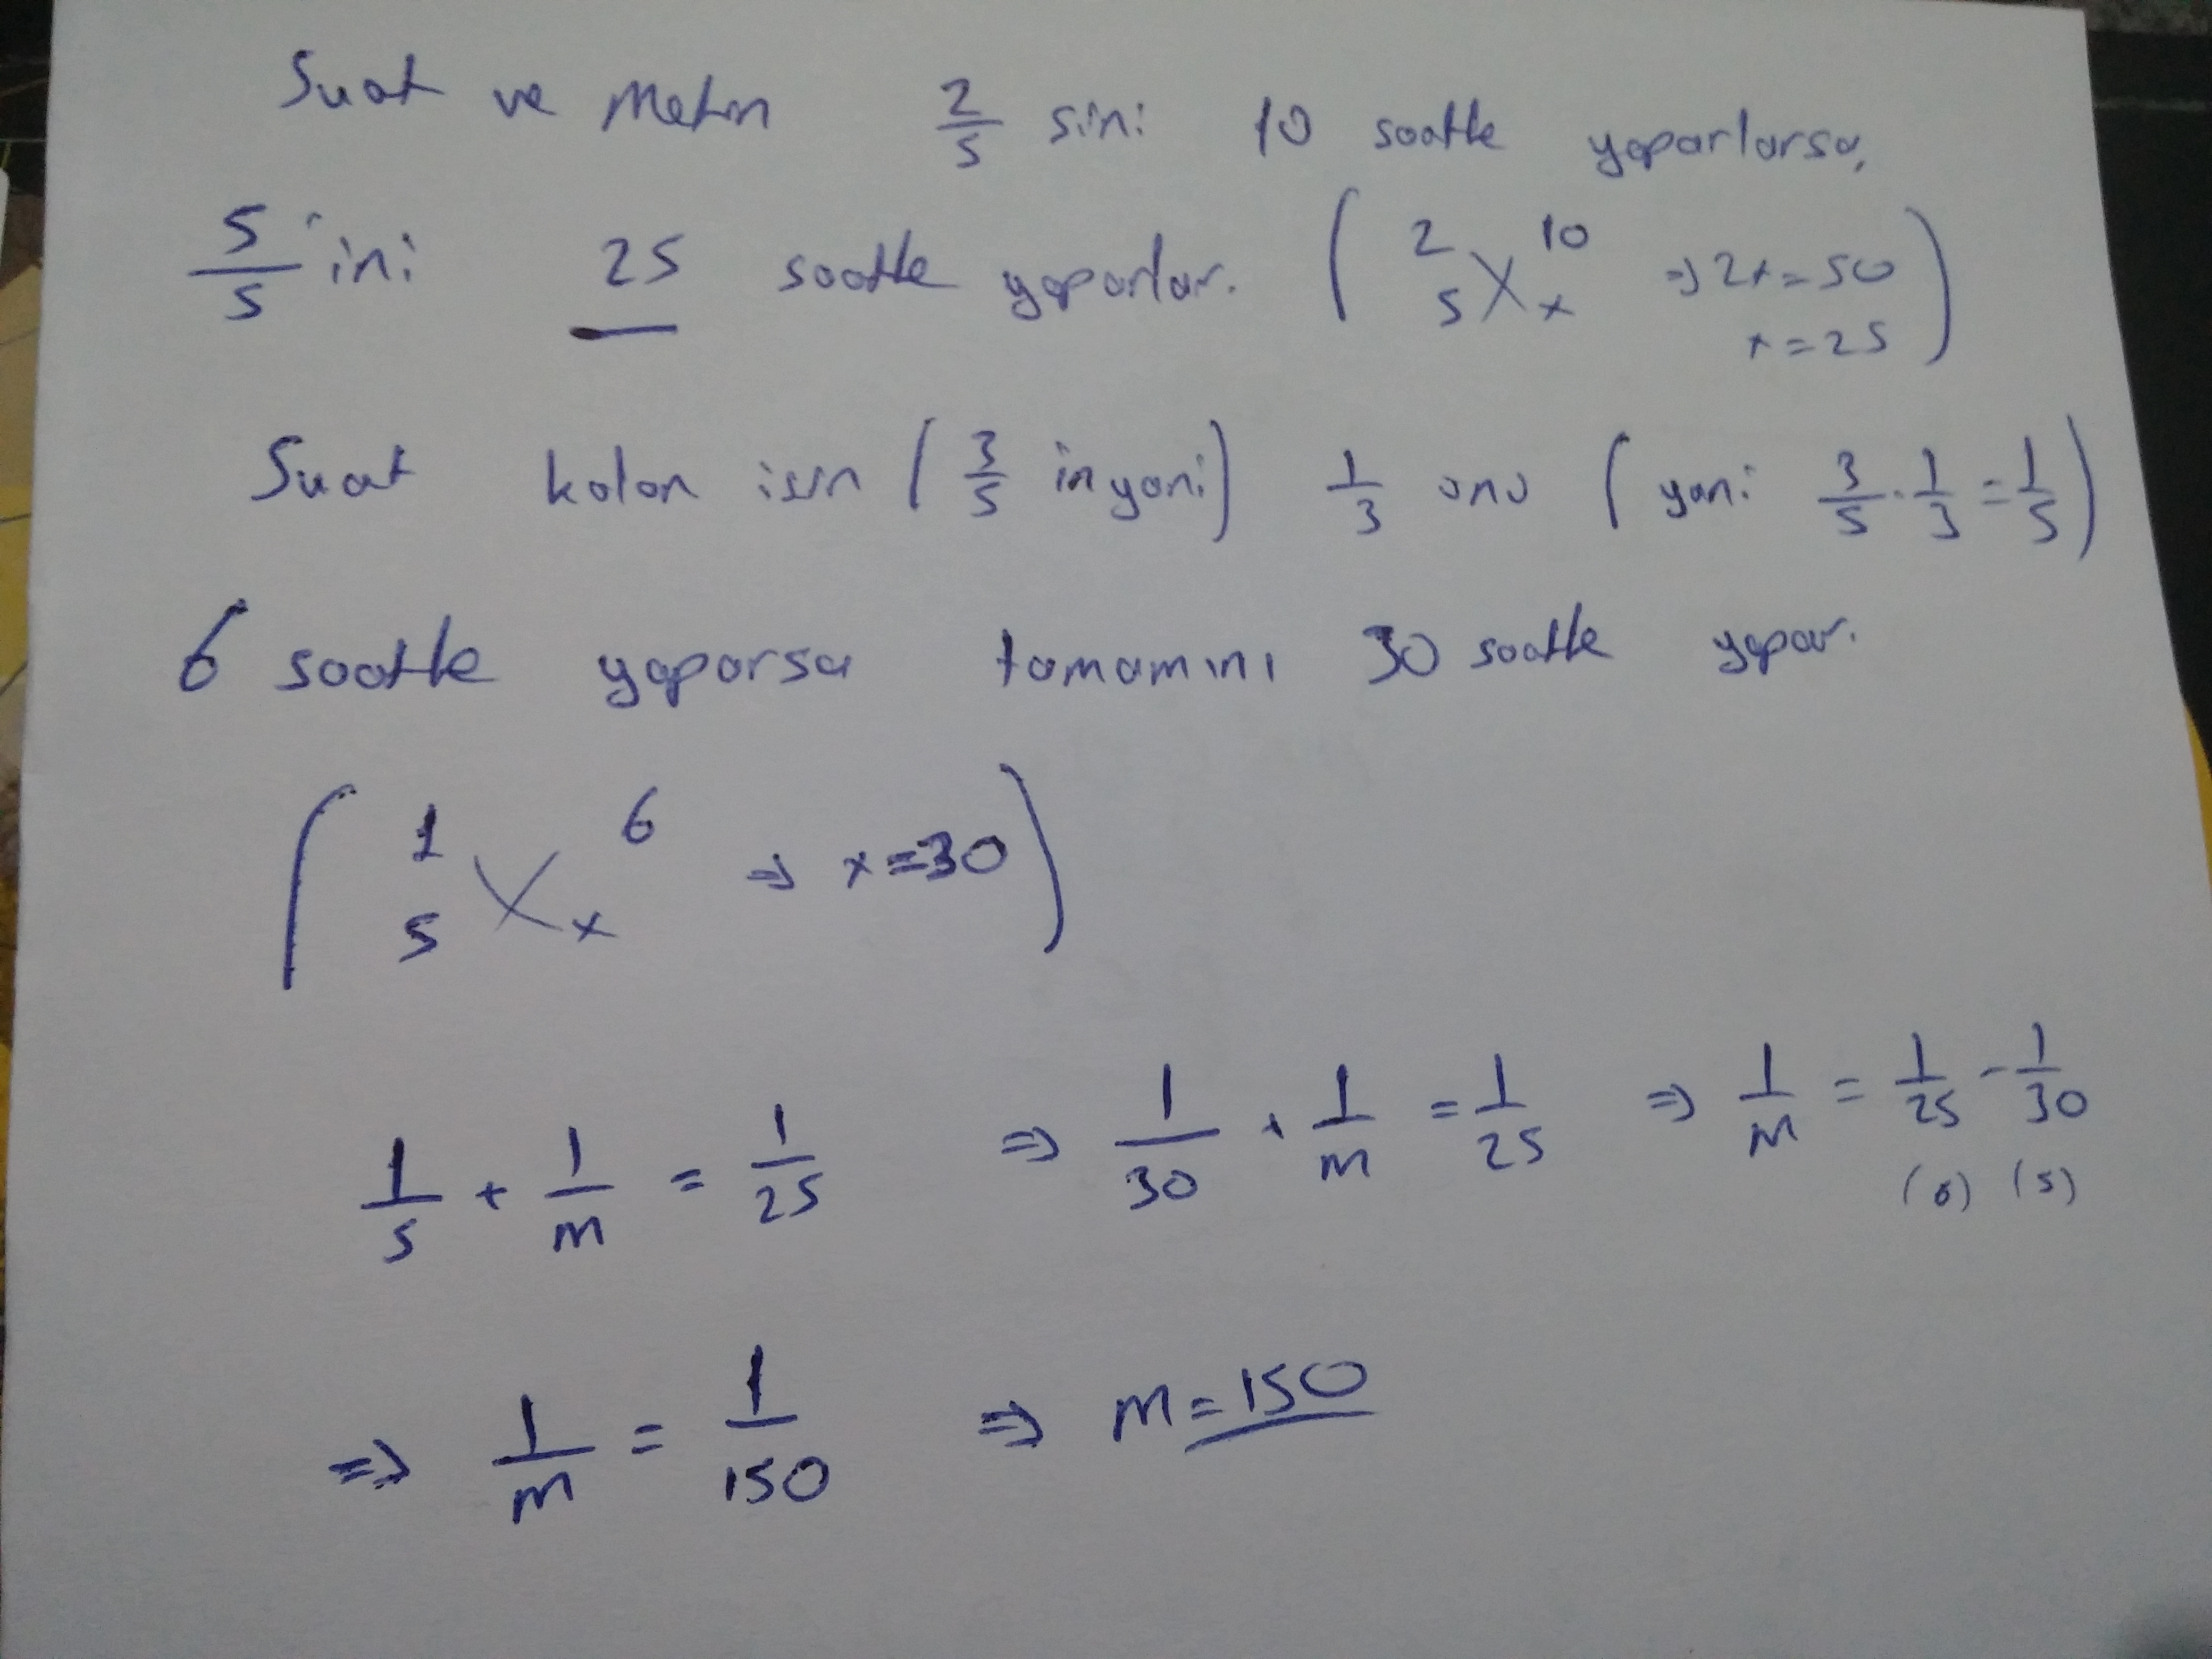 Suat ve Metin 2/5 sini 10 saatte yaparlarsa,
5/5 'ini 25 saatte yaparlar. ( 2 10 5 x ⇒ 2x=50 x=25 )
Suat kalan işin ( 3/5 in yani ) 1/3 ünü ( yani 3/5 . 1/3 = 1/5 )
6 saatte yaparsa tamamını 30 saatte yapar.
( 1 6 5 x ⇒ x=30 )
1/s + 1/m = 1/25 ⇒ 1/30 + 1/m = 1/25 ⇒ 1/m = 1/25 - 1/30
(6) (5)
⇒ 1/m = 1/150 ⇒ m=150